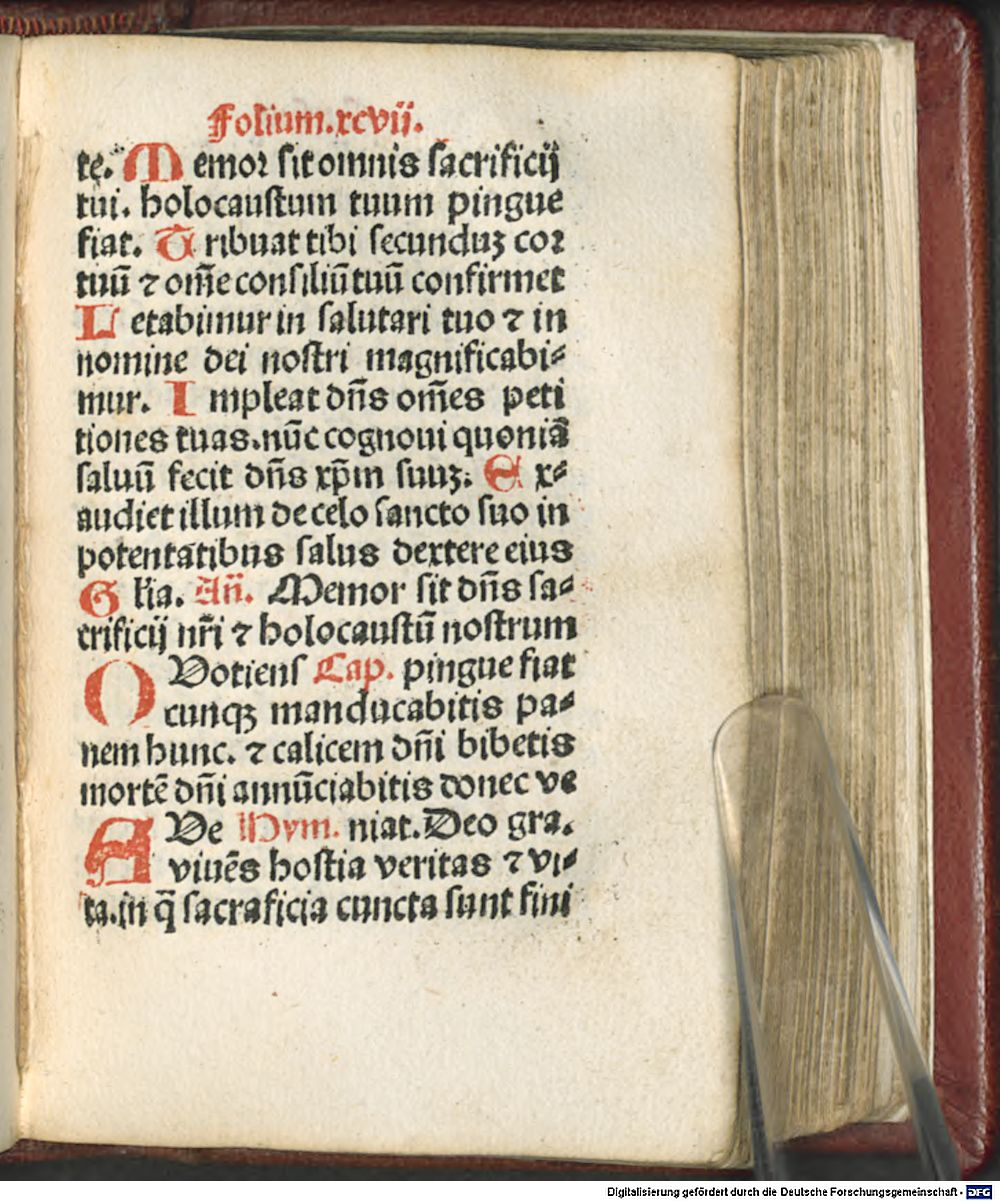 Folium.xcvii.
tę. Memoꝛ sit omnis sacrificij
tui. holocaustum tuum pingue
fiat. Tribuat tibi secunduꝫ coꝛ
tuū ⁊ om̄e consiliū tuū confirmet
Letabimur in salutari tuo ⁊ in
nomine dei nostri magnificabi⸗
mur. Impleat dn̄s om̄es peti
tiones tuas. nūc cognoui quoniā
saluū fecit dn̄s xp̄m suuꝫ. Ex⸗
audiet illum de celo sancto suo in
potentatibus salus dextere eius
Gl̄ia. An̄. Memor sit dn̄s sa⸗
crificij nr̄i ⁊ holocaustū nostrum
QVotiens Cap. pingue fiat
cunqꝫ manducabitis pa⸗
nem hunc. ⁊ calicem dn̄i bibetis
mortē dn̄i annūciabitis donec ve
AVe Hym. niat. Deo gra.
viuēs hostia veritas ⁊ vi⸗
ta. in q̄ sacraficia cuncta sunt fini
Digitalisierung gefördert durch die Deutsche Forschungsgemeinschaft - DFG